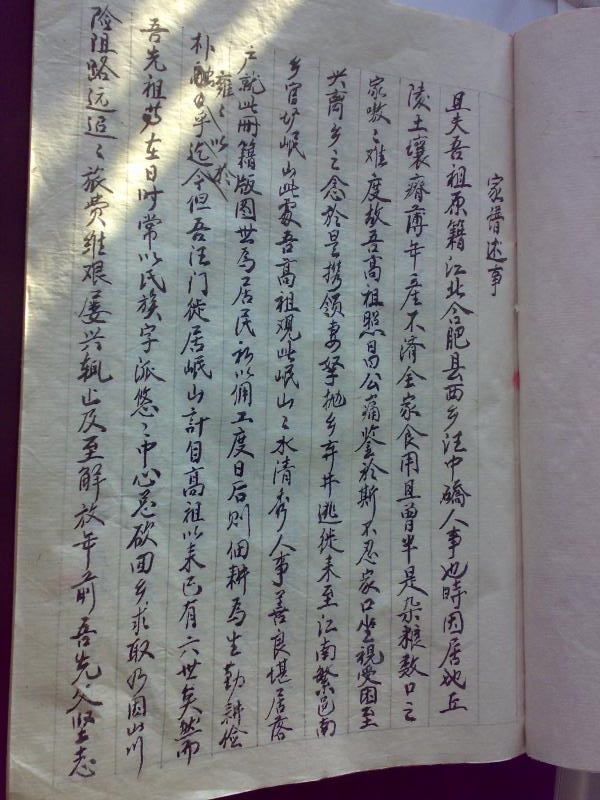 家谱述事
且夫吾祖原籍江北合肥县西乡法中桥人事也时因居地丘
陵土壤瘠薄年产不济全家食用且曾半是杂粮数口之
家嗷々难度故吾高祖照昌公痛鉴於斯不忍家口坐视受困至
兴离乡之念於是携领妻孥抛乡弃井逃徙来至江南繁邑南
乡官圩岷山此处吾高祖观此岷山之水清秀人事善良堪居落
户就此册籍版图世为居民初以佣工度日后则佃耕为生勤耕俭
朴雍々以於乎迄今但吾法门徙居岷山计自高祖以来已有六世矣然而
吾先祖父在日时常以民族字派悠々中心总欲回乡求取乃因山川
险阻路远迢々旅费维艰屡兴辄止及至解放年前吾先父坚志